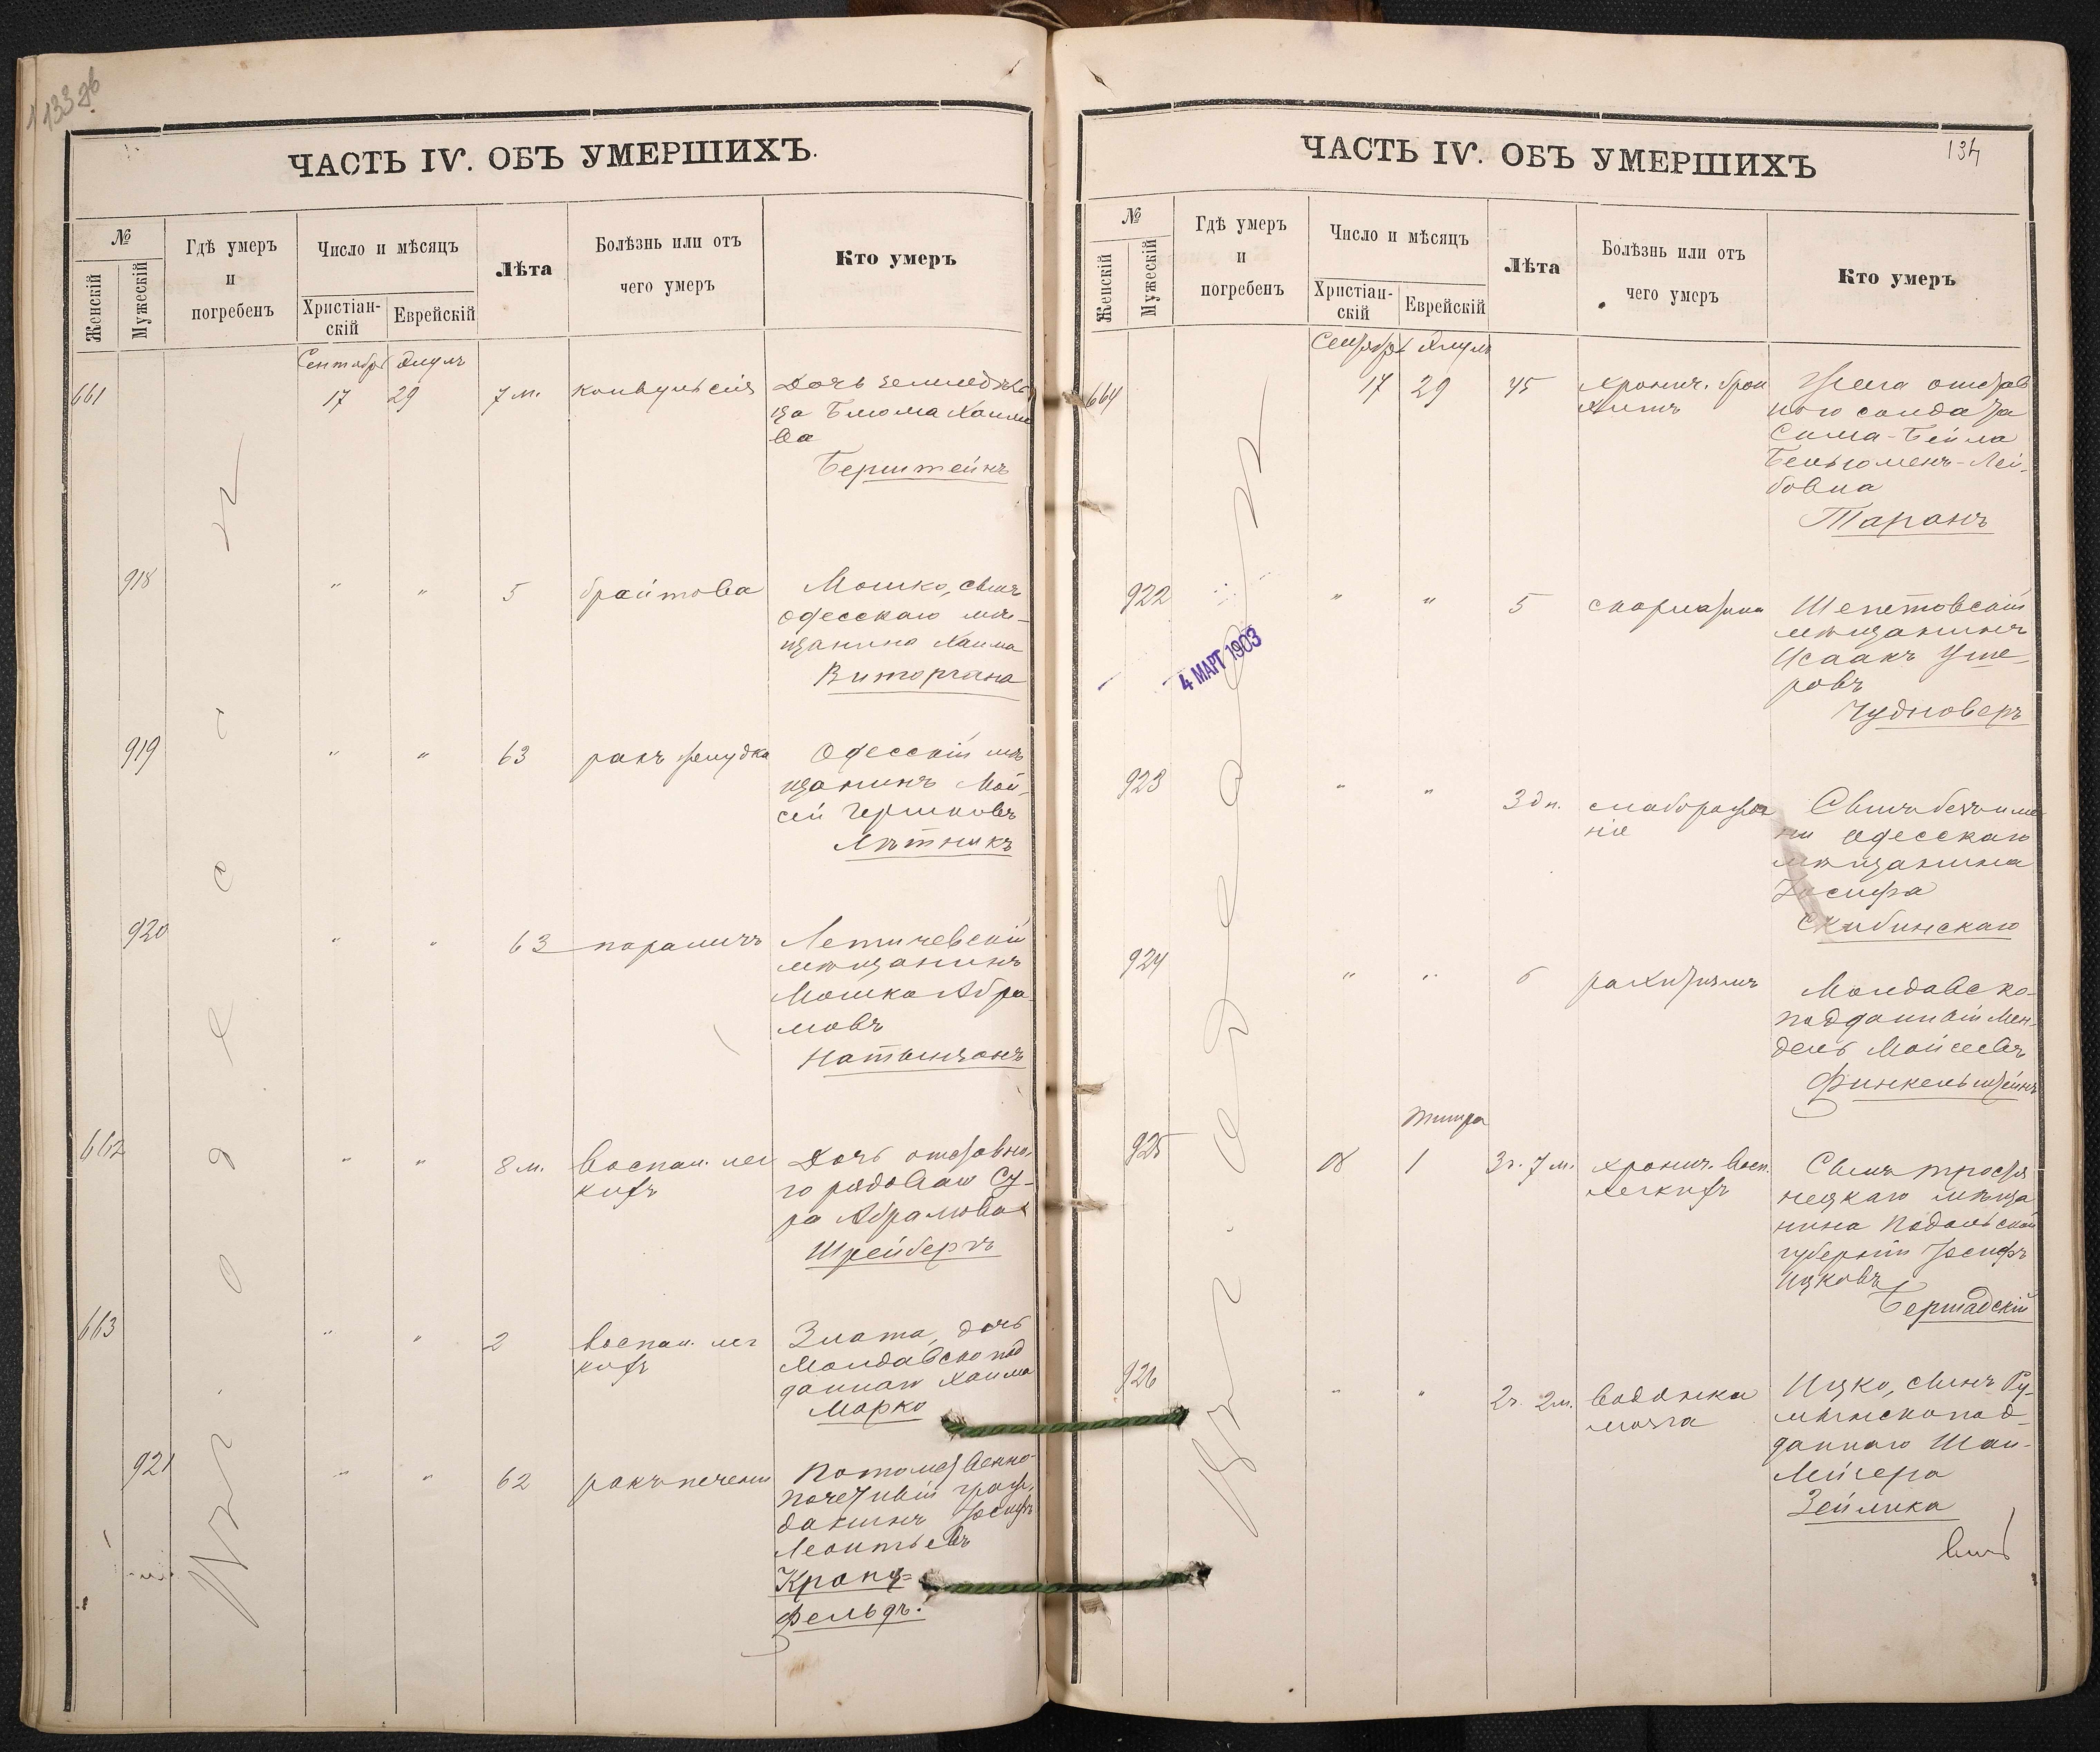 133 об
ЧАСТЬ IV. ОБЪ УМЕРШИХЪ.
№
Женскій
Мужескій
Гдѣ умеръ
и
погребенъ
Число и мѣсяцъ
Христіан-
скій
Еврейскій
Лѣта
Болѣзнь или отъ
чего умеръ
Кто умеръ
Сентябрь Элулъ
661 17 29 7 м. конвульсія Дочь земледѣль
ца Блюма Хаимо
ва
Бернштейнъ
918 " " 5 брайтова Мошко, сынъ
одесскаго мѣ-
щанина Хаима
Виторгана
919 " " 63 ракъ желудка Одесскій мѣ
щанинъ Мой-
сей Гершковъ
Лѣтникъ
920 " " 63 параличъ Летичевскій
мѣщанинъ
Мошко Абра
мовъ
Натанзонъ
662 " " 8 м. воспал. лег Дочь отставно-
кихъ го рядоваго Су-
ра Абрамова
Шрейберъ
663 " " 2 воспал. лег Злата, дочь
кихъ Молдавскопод
даннаго Хаима
Марко
921 " " 62 ракъ печени Потомственно-
почетный граж-
данинъ Іосифъ
Леонтьевъ
Кранц=
фельдъ.
Въ г. Одессѣ
134
ЧАСТЬ IV. ОБЪ УМЕРШИХЪ
№
Женскій
Мужескій
Гдѣ умеръ
и
погребенъ
Число и мѣсяцъ
Христіан-
скій
Еврейскій
Лѣта
Болѣзнь или отъ
чего умеръ
Кто умеръ
Сентябрь Элулъ
664 17 29 45 хронич. брон Жена отстав
хитъ ного солдата
Сима-Бейла
Беньюменъ-Лей-
бовна
Таранъ
922 " " 5 скарлатина Шепетовскій
мѣщанинъ
Исаакъ Уше-
ровъ
Чудноверъ
4 МАРТ 1903
923 " " 3 дн. слаборожде Сынъ безъ име
ніе ни одесскаго
мѣщанина
Іосифа
Скибинскаго
924 " " 6 рахитизмъ Молдавско-
подданный Мен-
дель Мойсеевъ
Финкельштейнъ
Тишра
925 18 1 3 г. 7 м. хронич. восп. Сынъ тростя
легкихъ нецкаго мѣща
нина Подольской
губерніи Іосифъ
Ицковъ
Бершадскій
926 " " 2 г. 2 м. водянка Ицко, сынъ Ру-
мозга мынскопод-
даннаго Шаи-
Лейзера
Зейлика
Въ г. Одессѣ